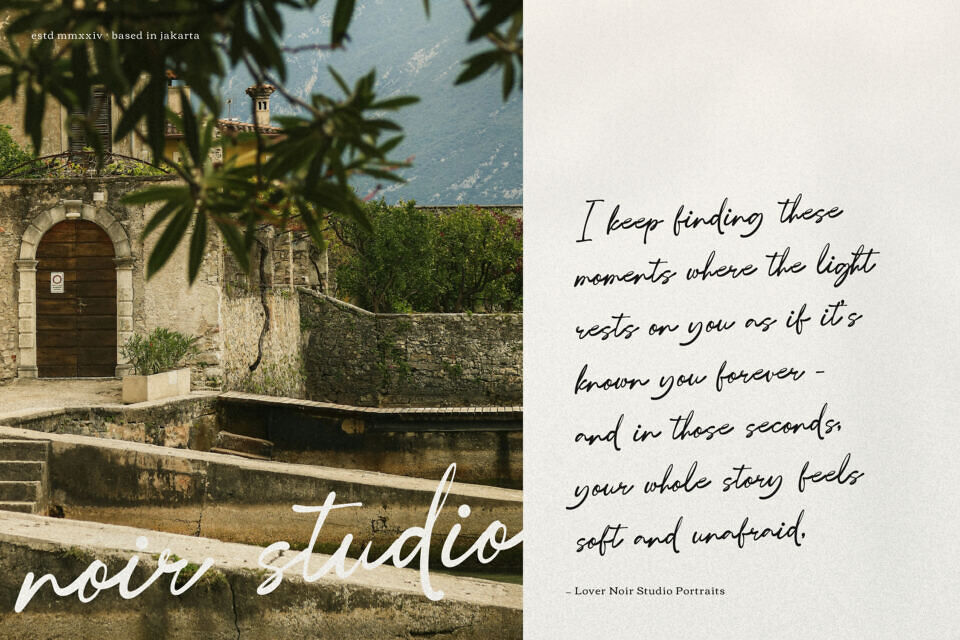 estd mmxxiv · based in jakarta
noir studio
I keep finding these
moments where the light
rests on you as if it's
known you forever -
and in those seconds,
your whole story feels
soft and unafraid,
– Lover Noir Studio Portraits